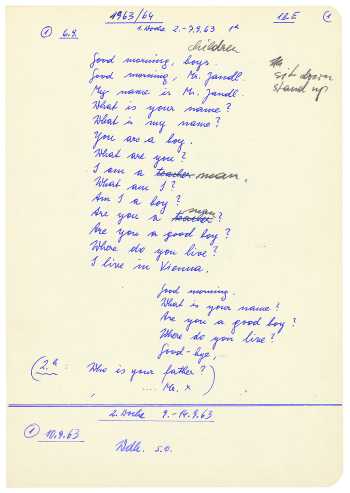 1963/64
1. Woche 2.-7.9.63
① 6.9.
children
Good morning, boys.
Good morning, Mr. Jandl.
My name is Mr. Jandl.
sit down
stand up
What is your name?
What is my name?
You are a boy.
What are you?
I am a teacher man.
What am I?
Am I a boy?
man
Are you a teacher?
Are you a good boy?
Where do you live?
I live in Vienna.
Good morning.
What is your name?
Are you a good boy?
Where do you live?
Good-bye,
(2.h: Who is your father?
, .... Mr. x)
2. Woche 9.-14.9.63
① 10.9.63
Wdh. s.o.